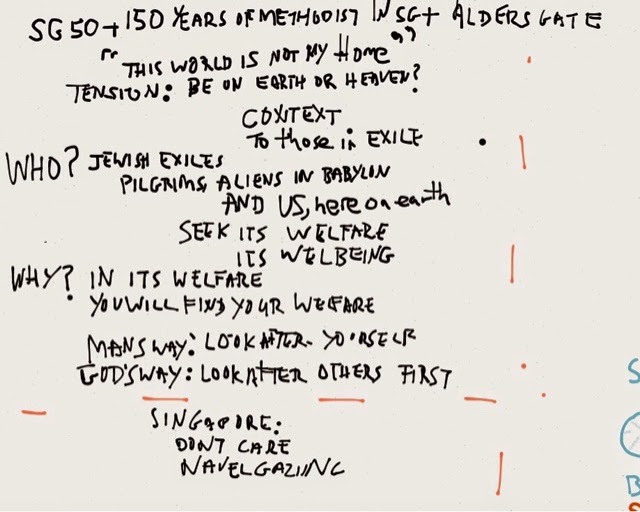 SG50+150 YEARS OF METHODIST IN SG+ ALDERSGATE
"THIS WORLD IS NOT MY HOME"
TENSION: BE ON EARTH OR HEAVEN?
CONTEXT
TO those in EXILE
WHO? JEWISH EXILES
PILGRIMS, ALIENS IN BABYLON
AND US, here on earth
SEEK ITS WELFARE
ITS WELBEING
WHY? IN ITS WELFARE
YOU WILL FIND YOUR WELFARE
MANS WAY: LOOK AFTER YOURSELF
GOD'S WAY: LOOK AFTER OTHERS FIRST
SINGAPORE:
DONT CARE
NAVELGAZIING
S
B